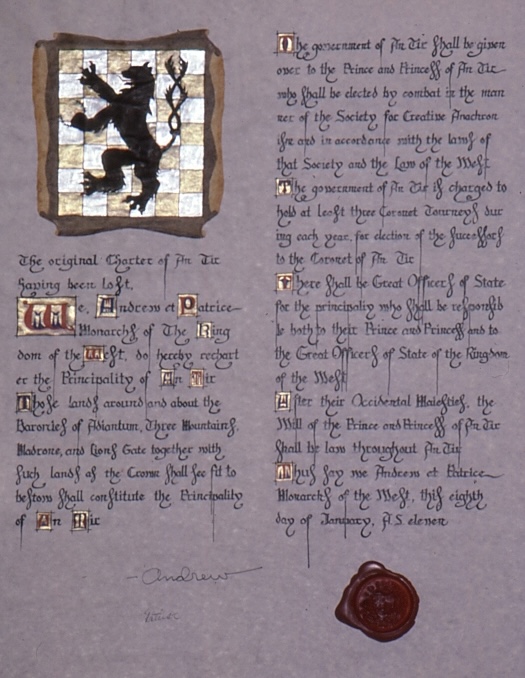 The original Charter of An Tir
having been lost,
We, Andrew et Patrice
Monarchs of The King
dom of the West, do hereby rechart
er the Principality of An Tir
Those lands around and about the
Baronies of Adiantum, Three Mountains,
Madrone, and Lions Gate together with
such lands of the Crown shall see fit to
bestow shall constitute the Principality
of An Tir
The government of An Tir shall be given
over to the Prince and Princess of An Tir
who shall be elected by combat in the man
ner of the Society for Creative Anachron
ism and in accordance with the laws of
that Society and the Law of the West
The government of An Tir is charged to
hold at least three Coronet Tourneys dur
ing each year, for election of the successors
to the Coronet of An Tir
There shall be Great Officers of State
for the principality who shall be responsib
le both to their Prince and Princess and to
the Great Officers of State of the Kingdom
of the West
After their Occidental Majesties, the
Will of the Prince and Princess of An Tir
shall be law throughout An Tir
Thus say we Andrew et Patrice
Monarchs of the West, this eighth
day of January, A.S. eleven
-Andrew